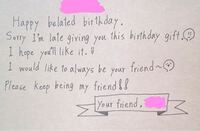 Happy belated birthday.
Sorry I'm late giving you this birthday gift.
I hope you'll like it.
I would like to always be your friend~
Please keep being my friend!!
Your friend,